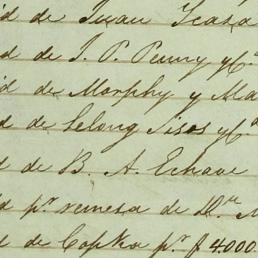 id de Juan Icaza
d de J. P. Puny y Cª
id de Morphy y Ma
d de Lelong Jisos y Cª
d de B. A. Echave
d pr. remesa de D.re
d de Copka pr $ 4.000